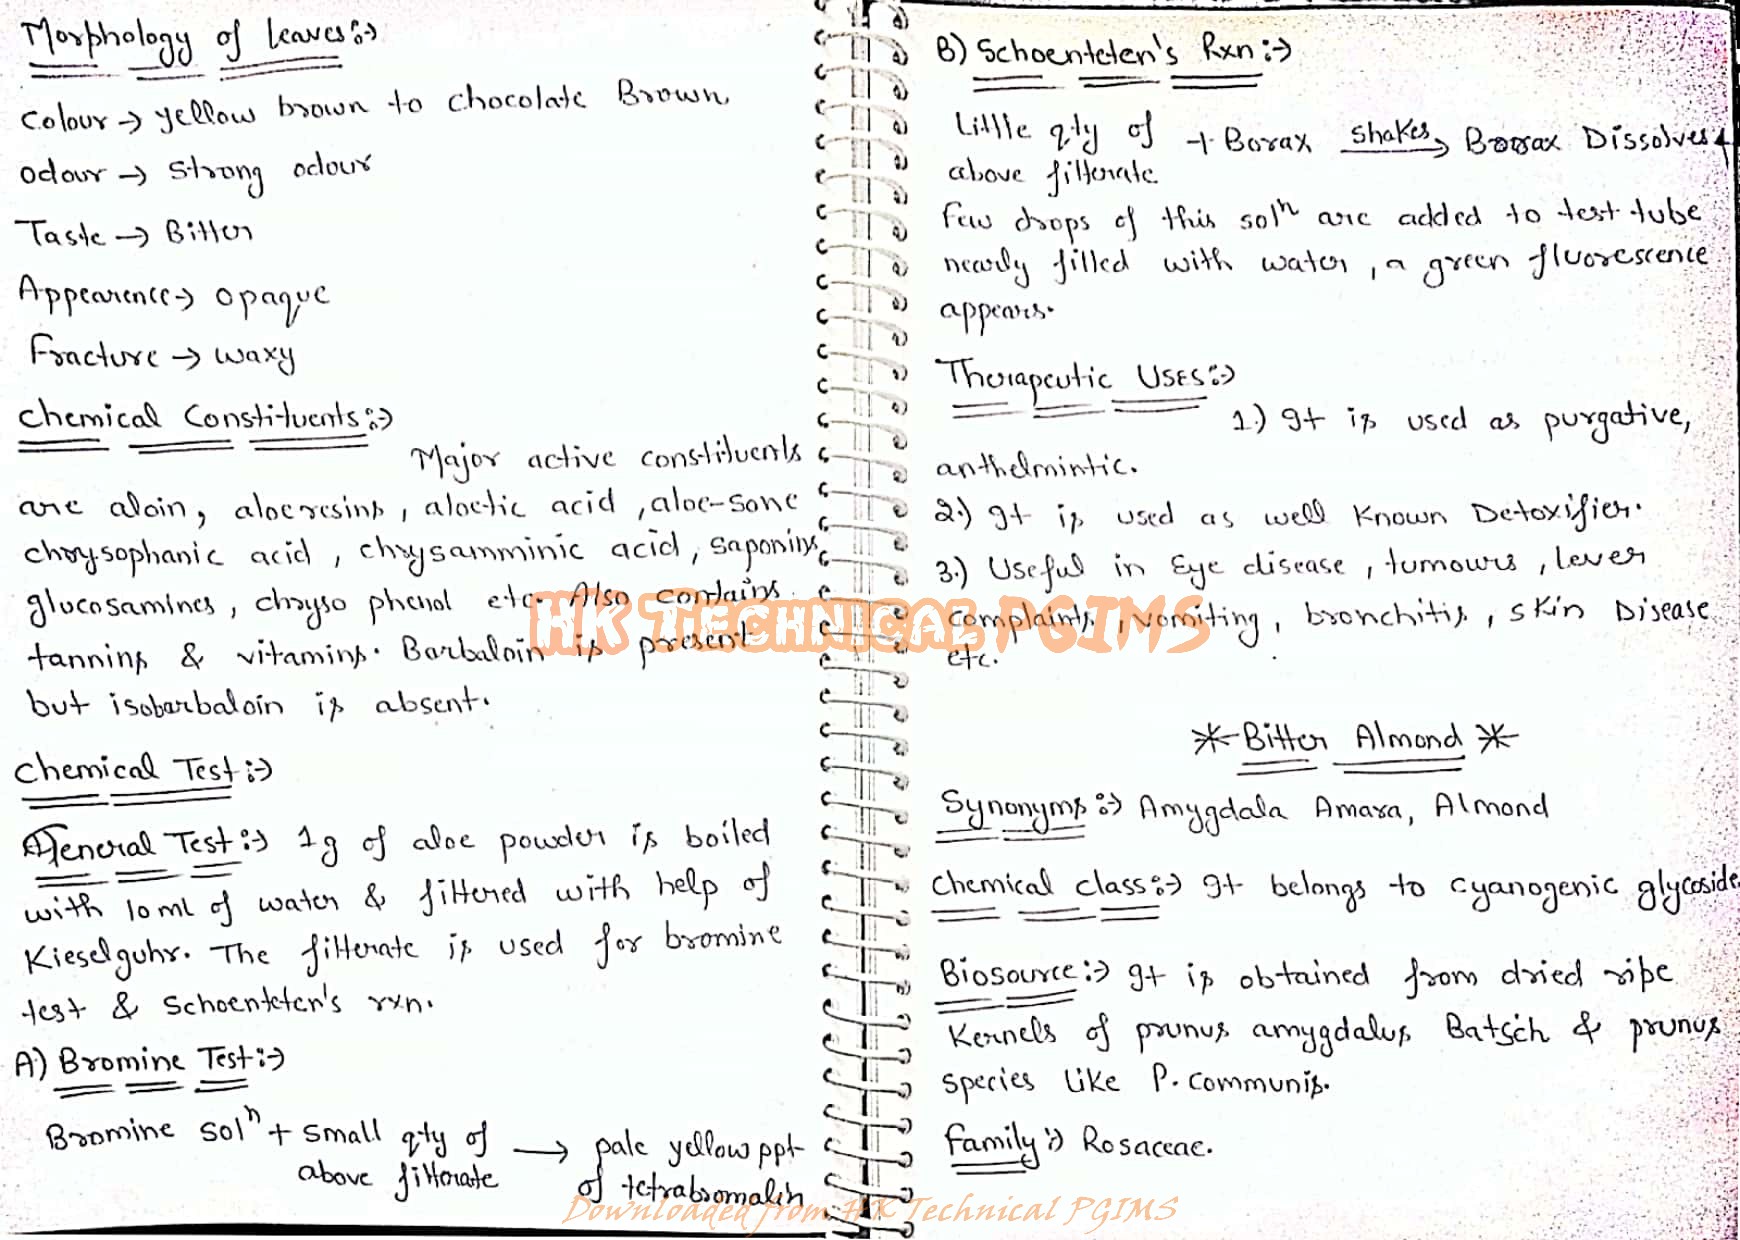 Morphology of leaves:→
Colour → yellow brown to chocolate Brown.
Odour → strong odour
Taste → Bitter
Appearence → opaque
Fracture → waxy
Chemical Constituents:→
Major active constituents
are aloin, aloeresins, aloetic acid, aloe-sone
chrysophanic acid, chrysamminic acid, saponins,
glucosamines, chryso phenol etc. Also contains
tannins & vitamins. Barbaloin is present
but isobarbaloin is absent.
Chemical Test:→
General Test:→ 1g of aloe powder is boiled
with 10ml of water & filtered with help of
Kieselguhr. The filterate is used for bromine
test & Schoenteten's rxn.
A) Bromine Test:→
Bromine solⁿ + small qty of → pale yellow ppt
above filterate of tetrabromalin
B) Schoenteten's Rxn:→
Little qty of + Borax shakes→ Borax Dissolves
above filterate.
Few drops of this solⁿ are added to test tube
nearly filled with water, a green fluorescence
appears.
Therapeutic USES:→
1.) It is used as purgative,
anthelmintic.
2.) It is used as well known Detoxifier.
3.) Useful in Eye disease, tumours, lever
complaints, vomiting, bronchitis, skin Disease
etc.
*Bitter Almond*
Synonyms:→ Amygdala Amara, Almond
Chemical class:→ It belongs to cyanogenic glycoside
Biosource:→ It is obtained from dried ripe
Kernels of prunus amygdalus Batsch & prunus
species like P. communis.
Family:→ Rosaceae.
HK TECHNICAL PGIMS
Downloaded from HK Technical PGIMS